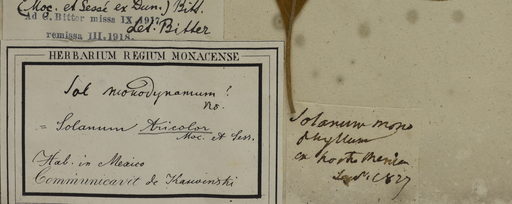 (Moc. et Sessé ex Dun.) Bitt.
Ad G. Bitter missa IX 1917
remissa III.1918.
det. Bitter
HERBARIUM REGIUM MONACENSE
Sol monodynamum!
ns.
= Solanum tricolor
Moc. et Sess.
Hab. in Mexico
Communicavit de Karwinski
Solanum mono
phyllum
1827